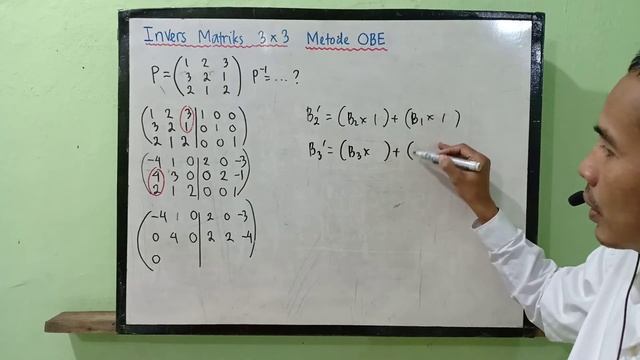 Invers Matriks 3 x 3 Metode OBE
P = ( 1 2 3 P⁻¹ = .... ?
3 2 1
2 1 2 )
( 1 2 3 | 1 0 0
3 2 1 | 0 1 0
2 1 2 | 0 0 1 )
( -4 1 0 | 2 0 -3
4 3 0 | 0 2 -1
2 1 2 | 0 0 1 )
( -4 1 0 | 2 0 -3
0 4 0 | 2 2 -4
0 | )
B₂' = (B₂ x 1) + (B₁ x 1)
B₃' = (B₃ x ) + (